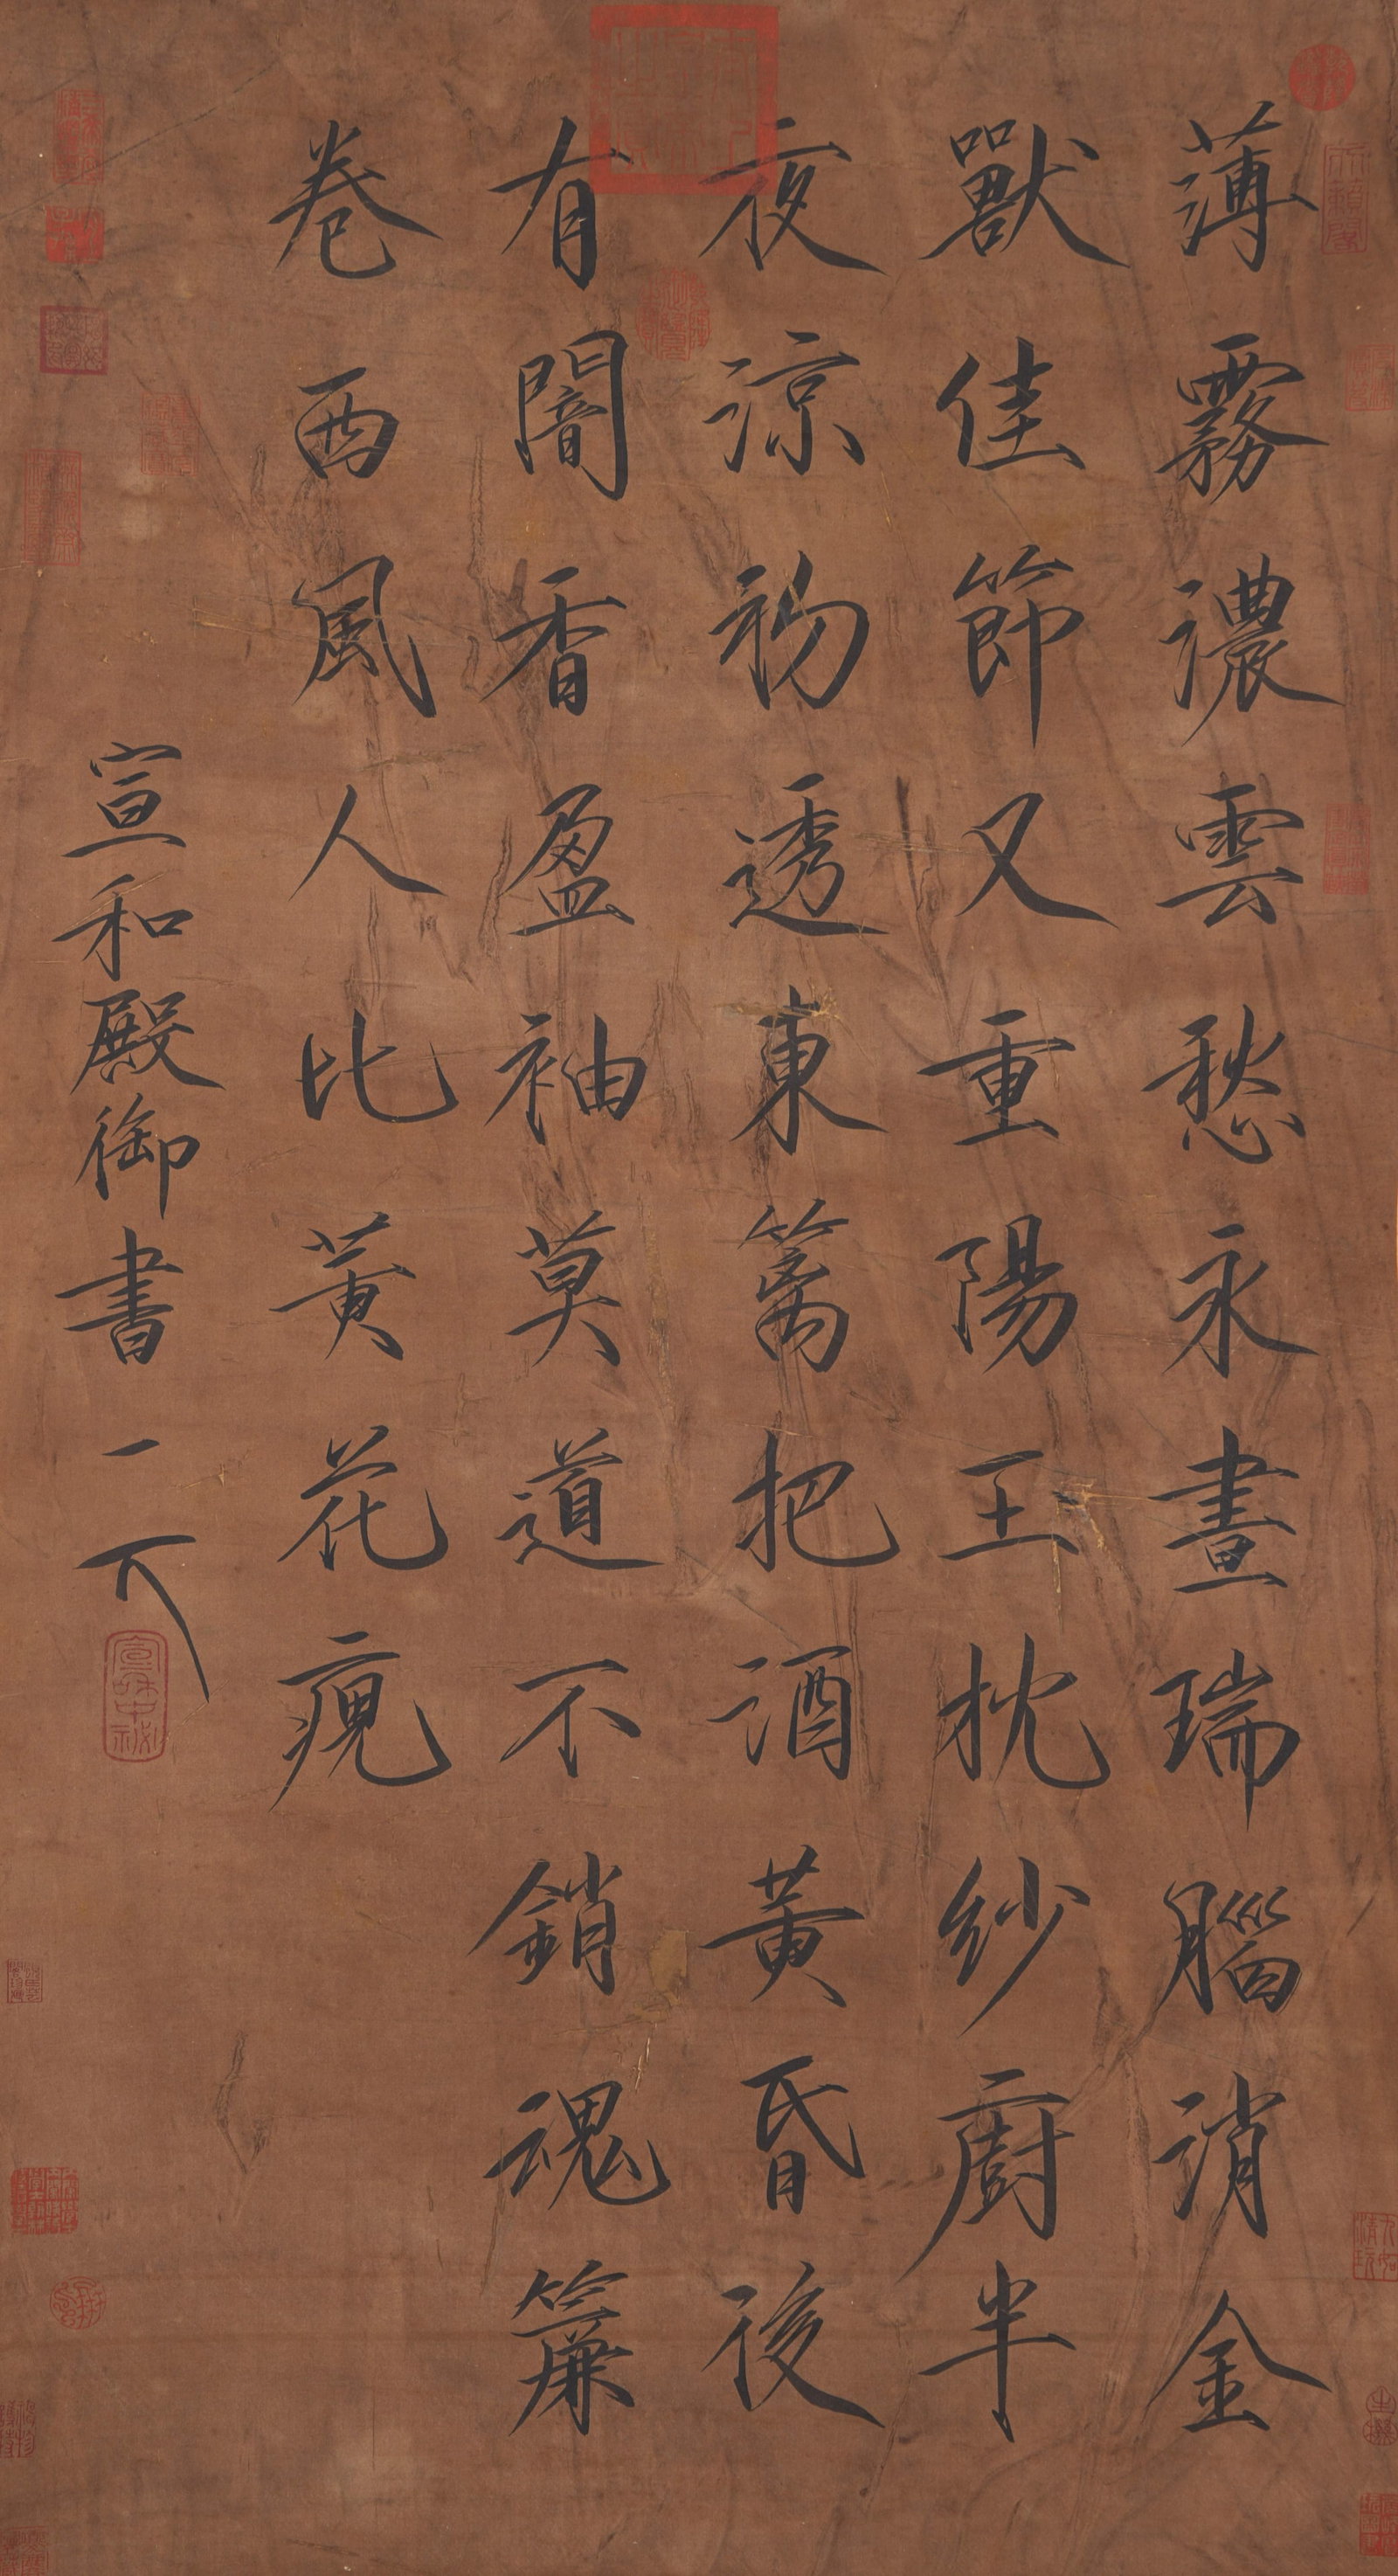 薄霧濃雲愁永晝瑞腦消金
獸佳節又重陽王枕紗廚半
夜涼初透東籬把酒黃昏後
有闇香盈袖莫道不銷魂簾
卷西風人比黃花瘦
宣和殿御書
宣和中秘